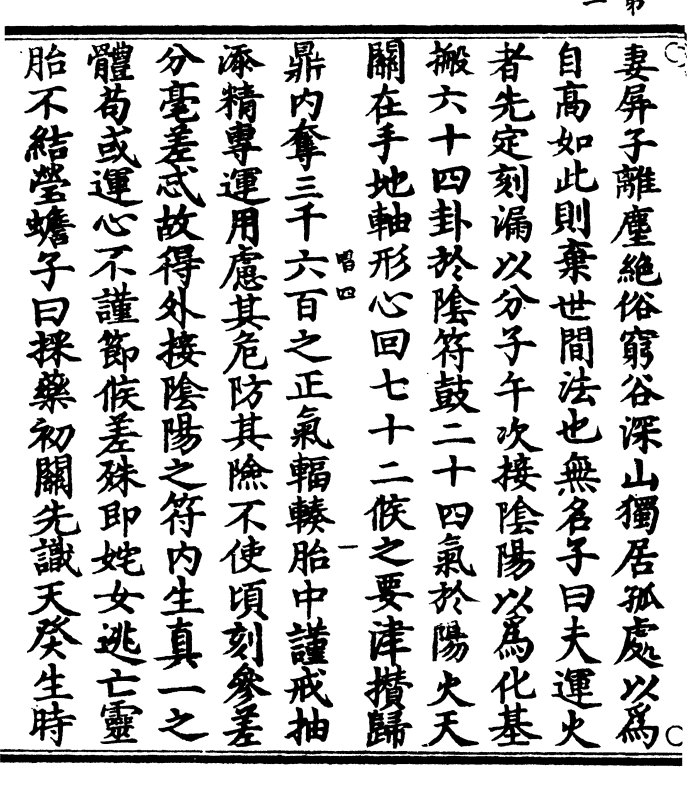 妻屏子離塵絶俗窮谷深山獨居孤處以爲
自高如此則棄世間法也無名子曰夫運火
者先定刻漏以分子午次接陰陽以爲化基
搬六十四卦於陰符鼓二十四氣於陽火天
關在手地軸形心回七十二候之要津攅歸
唱四 一
鼎内奪三千六百之正氣輻輳胎中謹戒抽
添精專運用慮其危防其險不使頃刻參差
分毫差忒故得外接陰陽之符内生真一之
體苟或運心不謹節候差殊即姹女逃亡靈
胎不結瑩蟾子曰採藥初關先識天癸生時